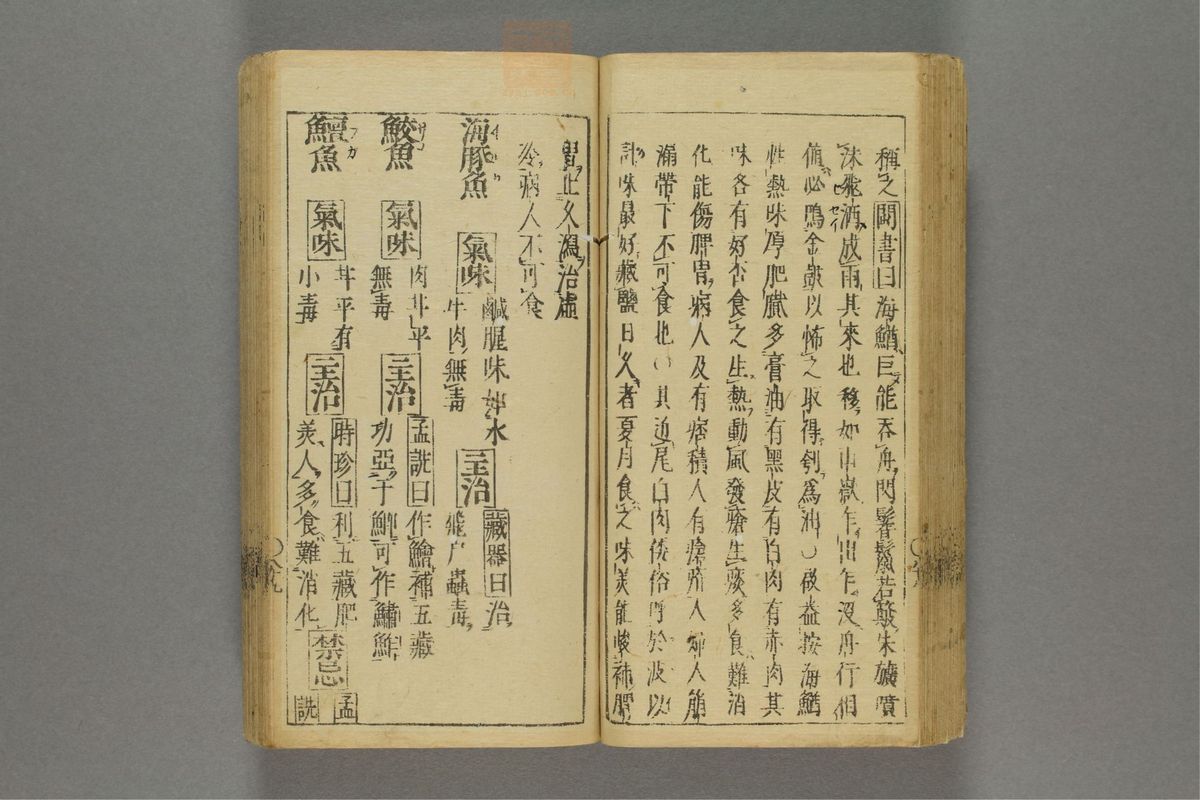 稱之閩書曰海鰌巨能呑舟閃鬐鬣若簸朱旗噴
沫飛洒成雨其來也移如山嶽乍出乍沒舟行相
値必鳴金鼓以怖之取得刳爲油〇啟益按海鰌
性熱味厚肥膩多膏油有黑皮有白肉有赤肉其
味各有好否食之生熱動風發瘡生痰多食難消
化能傷脾胃病人及有痞積人有瘡瘍人婦人崩
漏帶下不可食也〇其近尾白肉倭俗呼於波以
計味最好藏鹽日久者夏月食之味美能峻補脾
胃止久瀉治虛
冷病人不可食
海豚魚 氣味 鹹腥味如水
牛肉無毒 主治 藏器曰治
飛尸蟲毒
鮫魚 氣味 肉甘平
無毒 主治 孟詵曰作鱠補五藏
功亞于鯽可作鱐鮓
鱣魚 氣味 甘平有
小毒 主治 時珍曰利五藏肥
美人多食難消化 禁忌 孟
詵